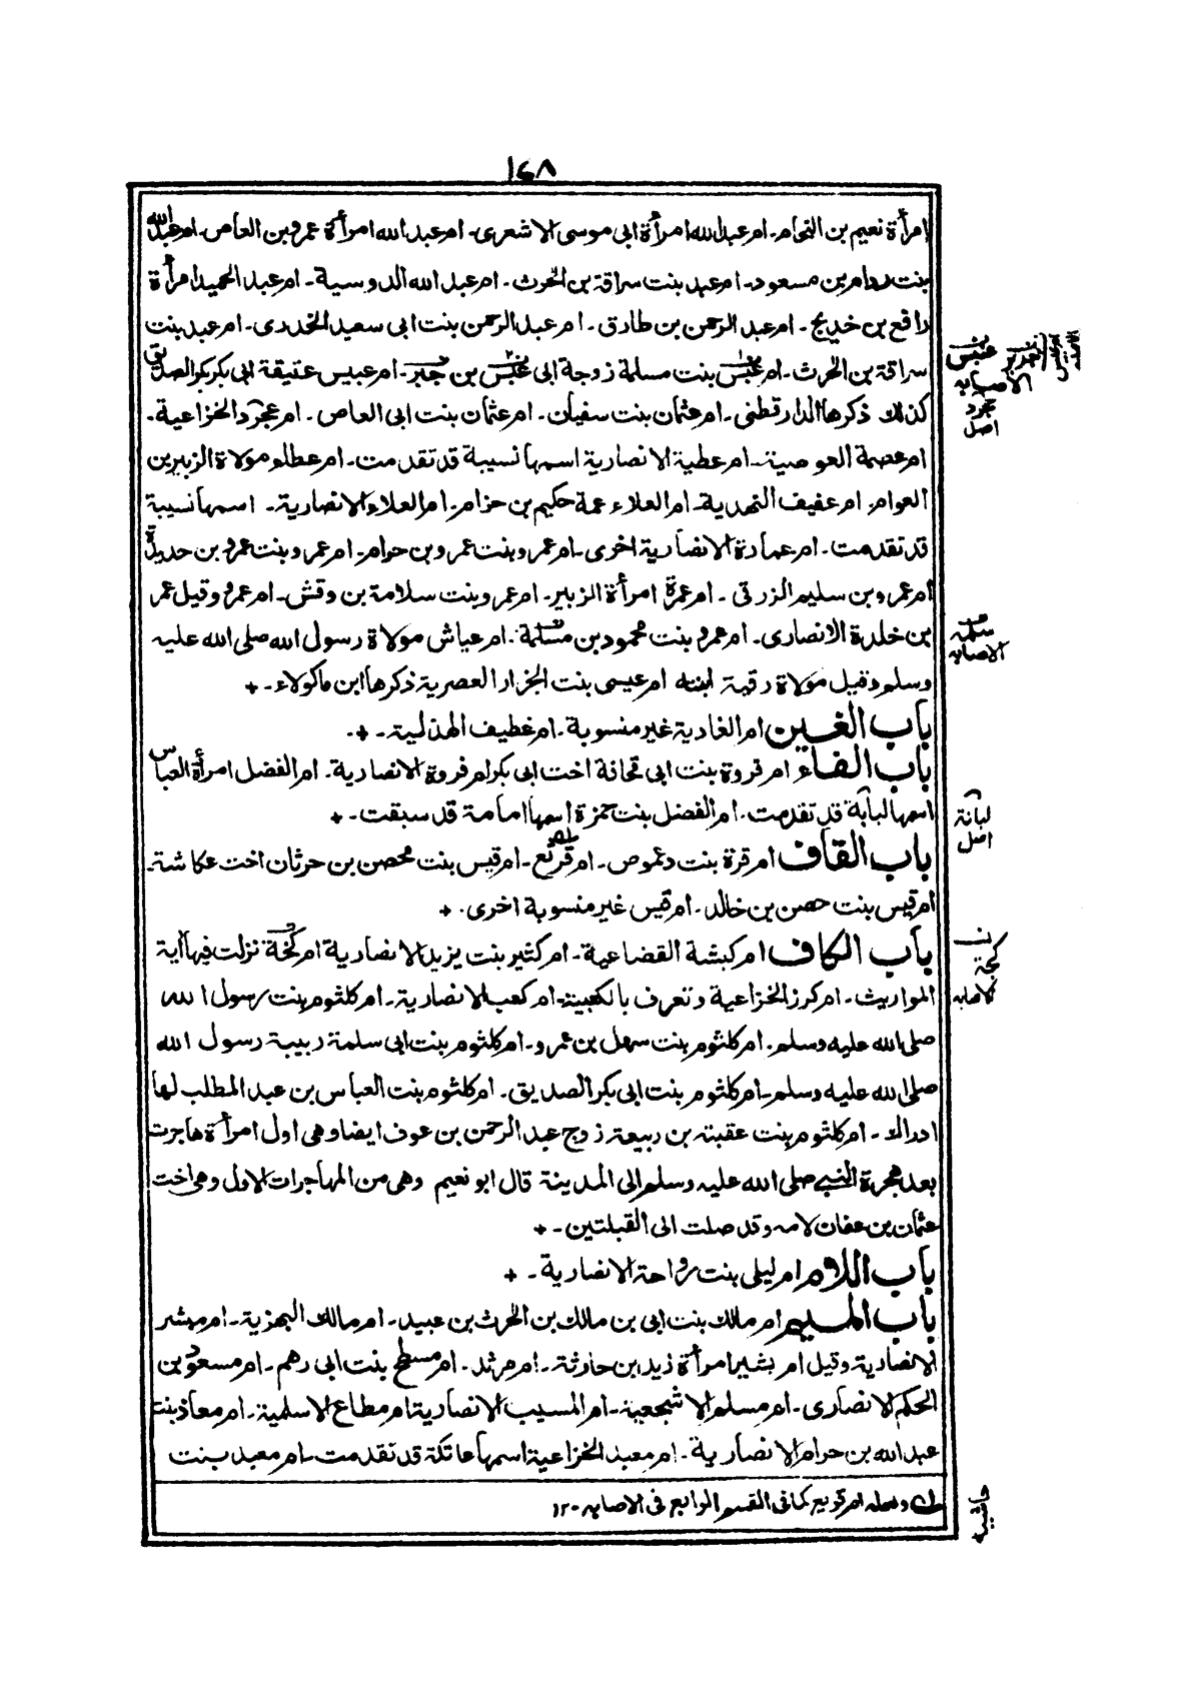 ١٤٨
امرأة نعيم بن النحام۔ ام عبد الله امرأة ابى موسى الاشعرى۔ ام عبد الله امرأة عمرو بن العاص۔ ام عبد الله
بنت دوام بن مسعود۔ ام عبد بنت سراقة بن الحرث۔ ام عبد الله الدوسية۔ ام عبد الحميد امرأة
رافع بن خديج۔ ام عبد الرحمن بن طارق۔ ام عبد الرحمن بنت ابى سعيد الخدرى۔ ام عبد بنت
سراقة بن الحرث۔ ام عبس بنت مسلمة زوجة ابى عبس بن جبر۔ ام عبيس عتيقة ابى بكر الصديق
كذلك ذكرها الدار قطنى۔ ام عثمان بنت سفيان۔ ام عثمان بنت ابى العاص۔ ام عجرد الخزاعية۔
ام عصمة العوصية۔ ام عطية الانصارية اسمها نسيبة قد تقدمت۔ ام عطاء مولاة الزبير بن
العوام۔ ام عفيف النهدية۔ ام العلاء عمة حكيم بن حزام۔ ام العلاء الانصارية۔ اسمها نسيبة
قد تقدمت۔ ام عمارة الانصارية اخرى۔ ام عمرو بنت عمرو بن حرام۔ ام عمرو بنت عمرو بن حديدة
ام عمرو بن سليم الزرقى۔ ام عمرة امرأة الزبير۔ ام عمرو بنت سلامة بن وقش۔ ام عمرو وقيل عمر
بن خلدة الانصارى۔ ام عمرو بنت محمود بن مسلمة۔ ام عياش مولاة رسول الله صلى الله عليه
وسلم وقيل مولاة رقية ابنته ام عيسى بنت الجزار العصرية ذكرها ابن ماكولاء۔ +
باب الغين ام الغادية غير منسوبة۔ ام غطيف الهذلية۔ +۔
باب الفاء ام فروة بنت ابى قحافة اخت ابى بكر ام فروة الانصارية۔ ام الفضل امرأة العباس
اسمها لبابة قد تقدمت۔ ام الفضل بنت حمزة اسمها امامة قد سبقت۔ +
باب القاف ام قرة بنت دعموص۔ ام قرثع۔ ام قيس بنت محصن بن حرثان اخت عكاشة۔
ام قيس بنت حصن بن خالد۔ ام قيس غير منسوبة اخرى۔ +
باب الكاف ام كبشة القضاعية۔ ام كثير بنت يزيد الانصارية ام كجة نزلت فيها آية
المواريث۔ ام كرز الخزاعية وتعرف بالكعبية۔ ام كعب الانصارية۔ ام كلثوم بنت رسول الله
صلى الله عليه وسلم۔ ام كلثوم بنت سهل بن عمرو۔ ام كلثوم بنت ابى سلمة ربيبة رسول الله
صلى الله عليه وسلم۔ ام كلثوم بنت ابى بكر الصديق۔ ام كلثوم بنت العباس بن عبد المطلب لها
ادراك۔ ام كلثوم بنت عقبته بن ربيعة زوج عبد الرحمن بن عوف ايضا وهى اول امرأة هاجرت
بعد هجرة النبى صلى الله عليه وسلم الى المدينة قال ابو نعيم وهى من المهاجرات الاول وهى اخت
عثمان بن عفان لامه وقد صلت الى القبلتين۔ +
باب اللام ام ليلى بنت رواحة الانصارية۔ +
باب الميم ام مالك بنت ابى بن مالك بن الحرث بن عبيد۔ ام مالك البهزية۔ ام مبشر
الانصارية وقيل ام بشير امرأة زيد ابن حارثة۔ ام مرثد۔ ام مسطح بنت ابى رهم۔ ام مسعود بن
الحكم الانصارى۔ ام مسلم الاشجعية۔ ام المسيب الانصارية ام مطاع الاسلمية۔ ام معاذ بنت
عبد الله بن حرام الانصارية۔ ام معبد الخزاعية اسمها عاتكة قد تقدمت۔ ام معبد بنت
ولعله ام قريع كما فى القسم الرابع فى الاصابه ١٢۰
عنبس
الاصابه
عجرد
اصل
مسلمة
الاصابه
لبابة
اصل
كجة
الاصابه
حاشيه